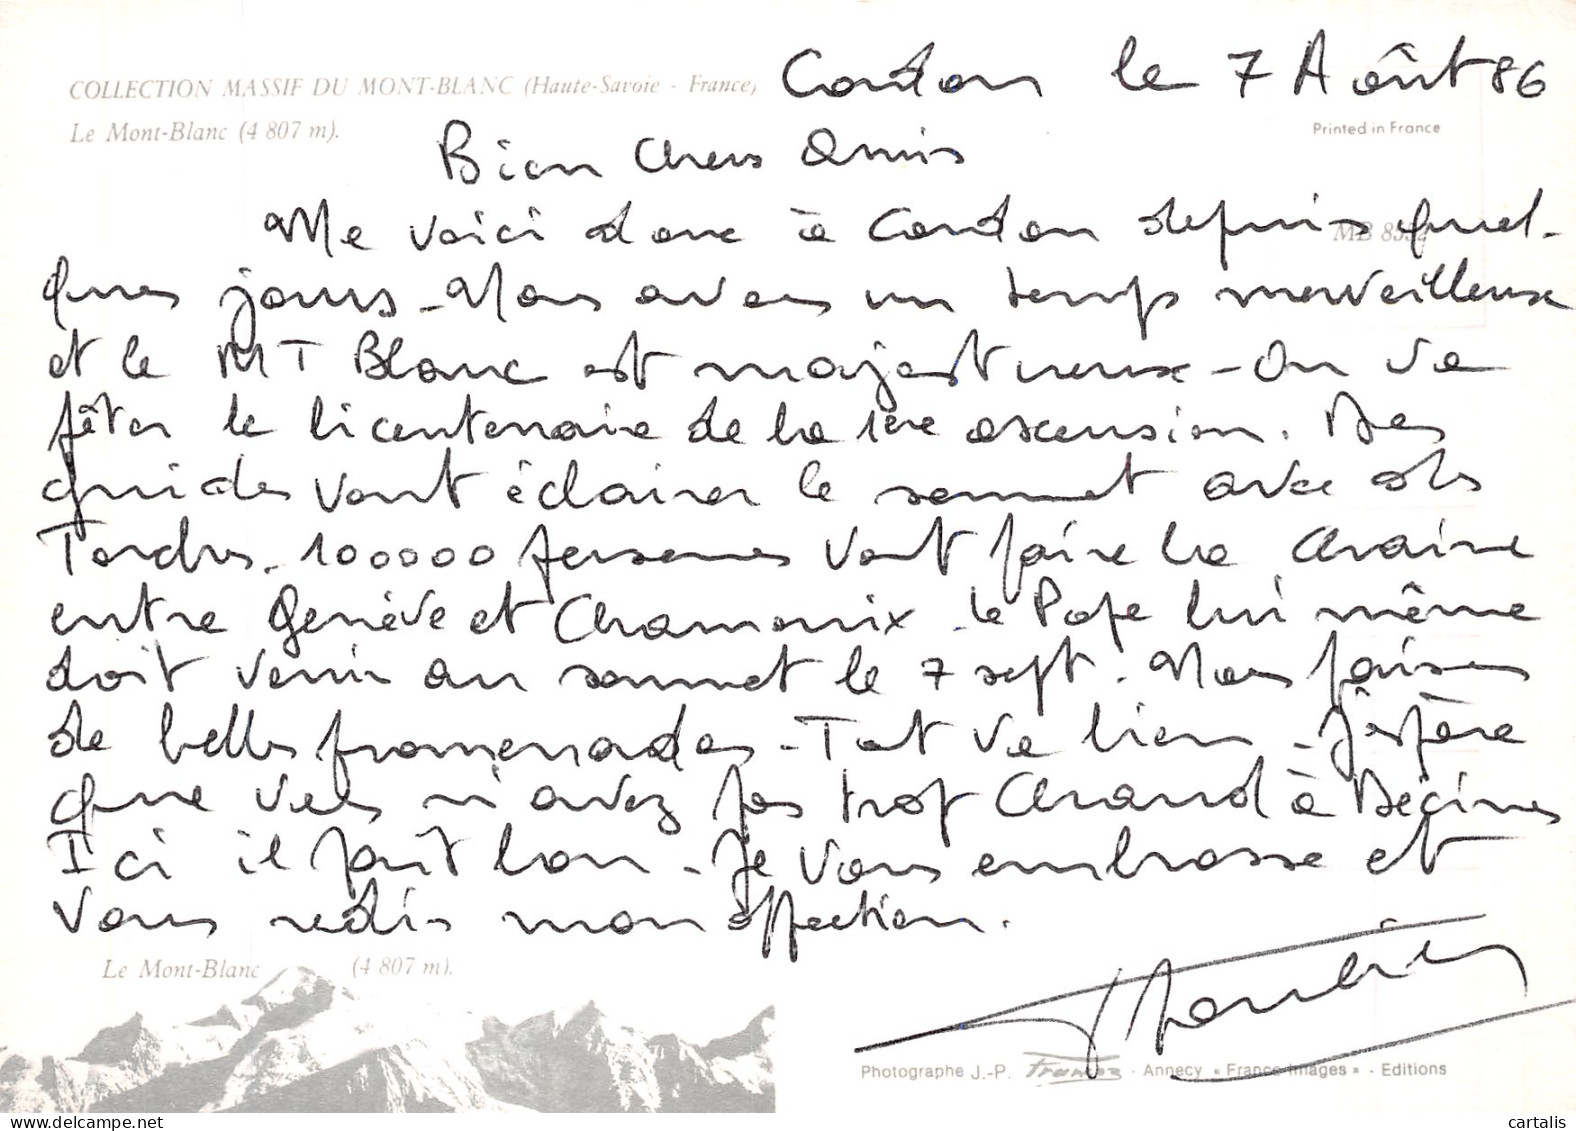 COLLECTION MASSIF DU MONT-BLANC (Haute-Savoie - France)
Le Mont-Blanc (4 807 m).
Cordon le 7 Août 86
Printed in France
Bien Chers Amis
Me voici donc à Cordon depuis quel-
MB 8532
ques jours - Nous avons un temps merveilleux
et le MT Blanc est majestueux - On va
fêter le bicentenaire de la 1ère ascension. Des
guides vont éclairer le sommet avec des
Torches. 100000 personnes vont faire la chaine
entre Genève et Chamonix - le Pape lui même
doit venir au sommet le 7 sept. Nous faisons
de belles promenades - Tout va bien - J'espère
que vous n'avez pas trop chaud à Décines
Ici il fait bon - Je vous embrasse et
vous redis mon affection.
Le Mont-Blanc (4 807 m).
Photographe J.-P. - Annecy « France-Images » - Editions
cartalis